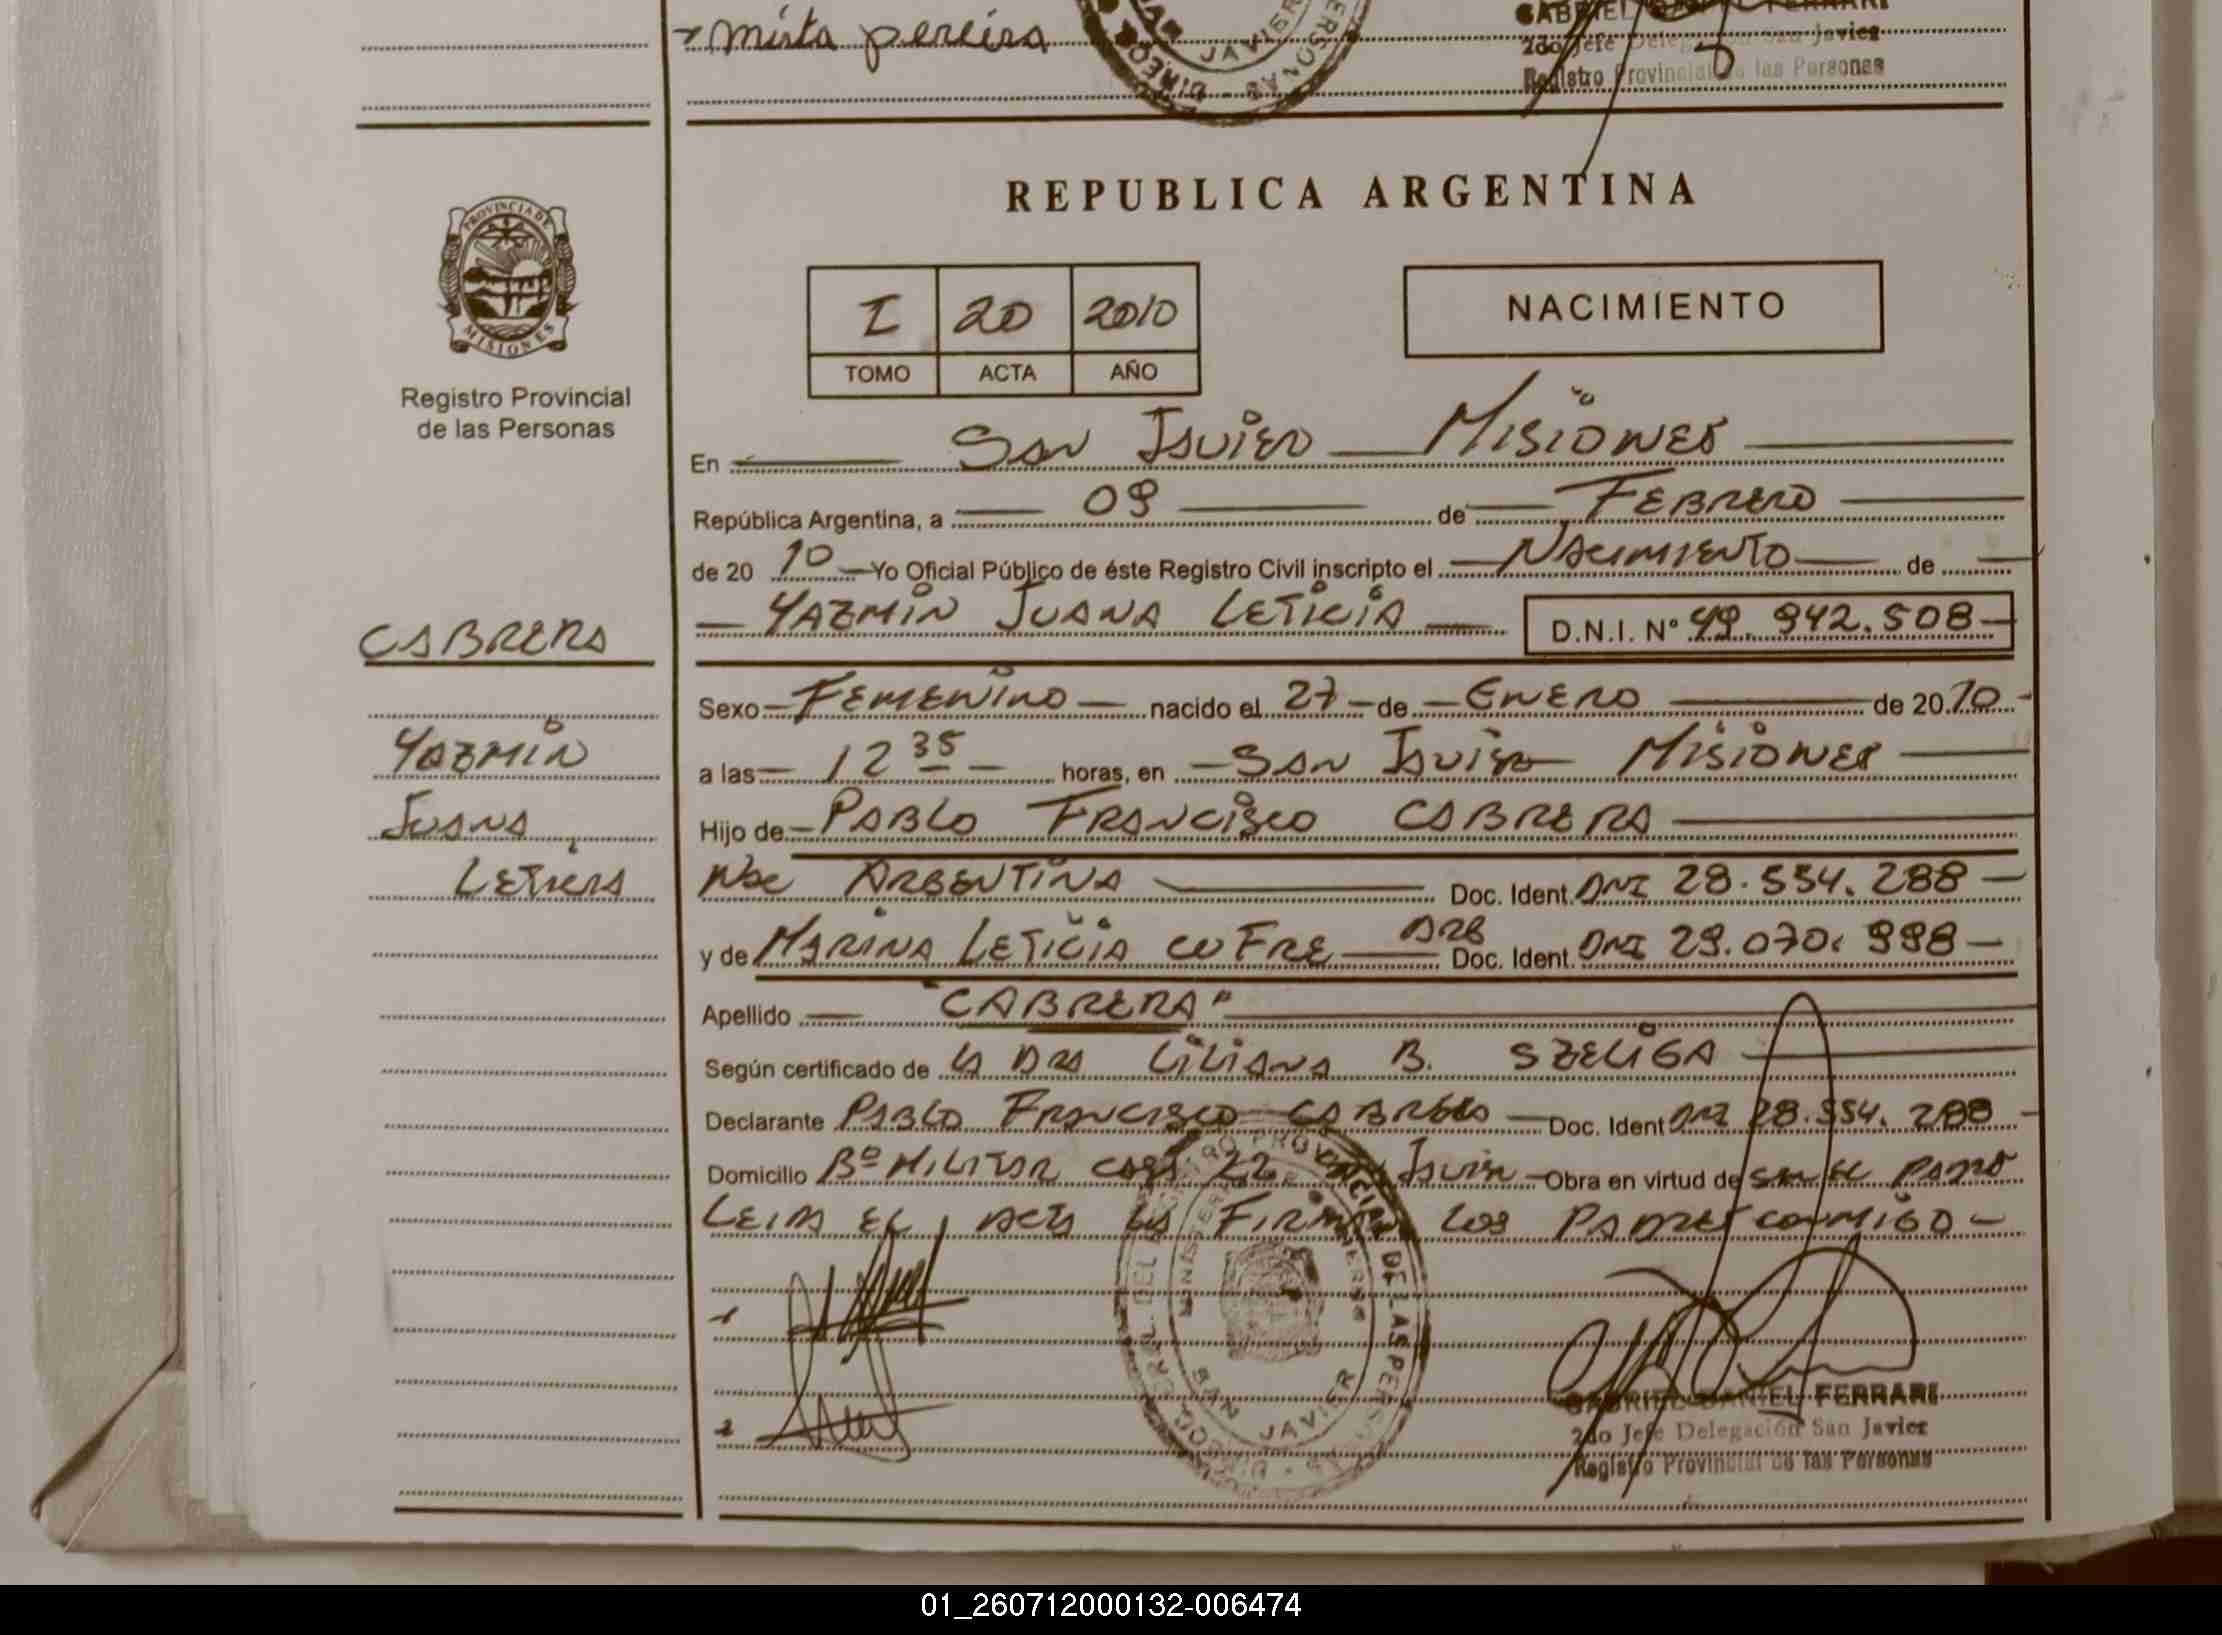 mirta pereira
GABRIEL DANIEL FERRARI
2do Jefe Delegación San Javier
Registro Provincial de las Personas
JAVIER
REPUBLICA ARGENTINA
PROVINCIA DE
MISIONES
Registro Provincial
de las Personas
I 20 2010
TOMO ACTA AÑO
NACIMIENTO
En San Javier Misiones
República Argentina, a 09 de Febrero
de 20 10 Yo Oficial Público de éste Registro Civil inscripto el Nacimiento de
Yazmin Juana Leticia D.N.I. N° 49.942.508
CABRERA
Yazmin
Juana
Leticia
Sexo Femenino nacido el 27 de Enero de 20 10
a las 12 35 horas, en San Javier Misiones
Hijo de Pablo Francisco CABRERA
Nac Argentina Doc. Ident. DNI 28.554.288
y de Marina Leticia CUFRE ARG Doc. Ident. DNI 29.070.998
Apellido "CABRERA"
Según certificado de la Dra Liliana B. SZELIGA
Declarante Pablo Francisco Cabrera Doc. Ident DNI 28.554.288
Domicilio Bº Militar casa 22 Javier Obra en virtud de ser el padre
Leida el acta la Firman los Padres conmigo
1
2
REGISTRO PROVINCIAL DE LAS PERSONAS
SAN JAVIER
GABRIEL DANIEL FERRARI
2do Jefe Delegación San Javier
Registro Provincial de las Personas
01_260712000132-006474